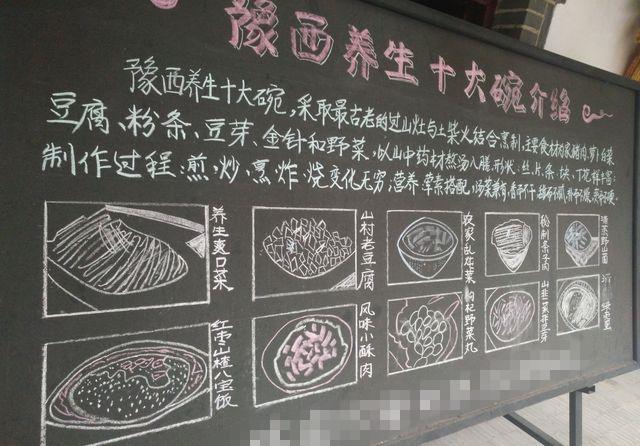 豫西养生十大碗介绍
豫西养生十大碗,采取最古老的过山灶与土柴火结合烹制,主要食材为家猪肉、萝卜白菜
豆腐、粉条、豆芽、金针和野菜,以山中药材熬汤入膳,形状:丝、片、条、块、丁花样丰富;
制作过程:煎、炒、烹、炸、烧变化无穷;营养:荤素搭配,汤菜兼有,
养生爽口菜
山村老豆腐
农家乱炖菜
秘制条子肉
红枣山楂八宝饭
风味小酥肉
枸杞野菜丸